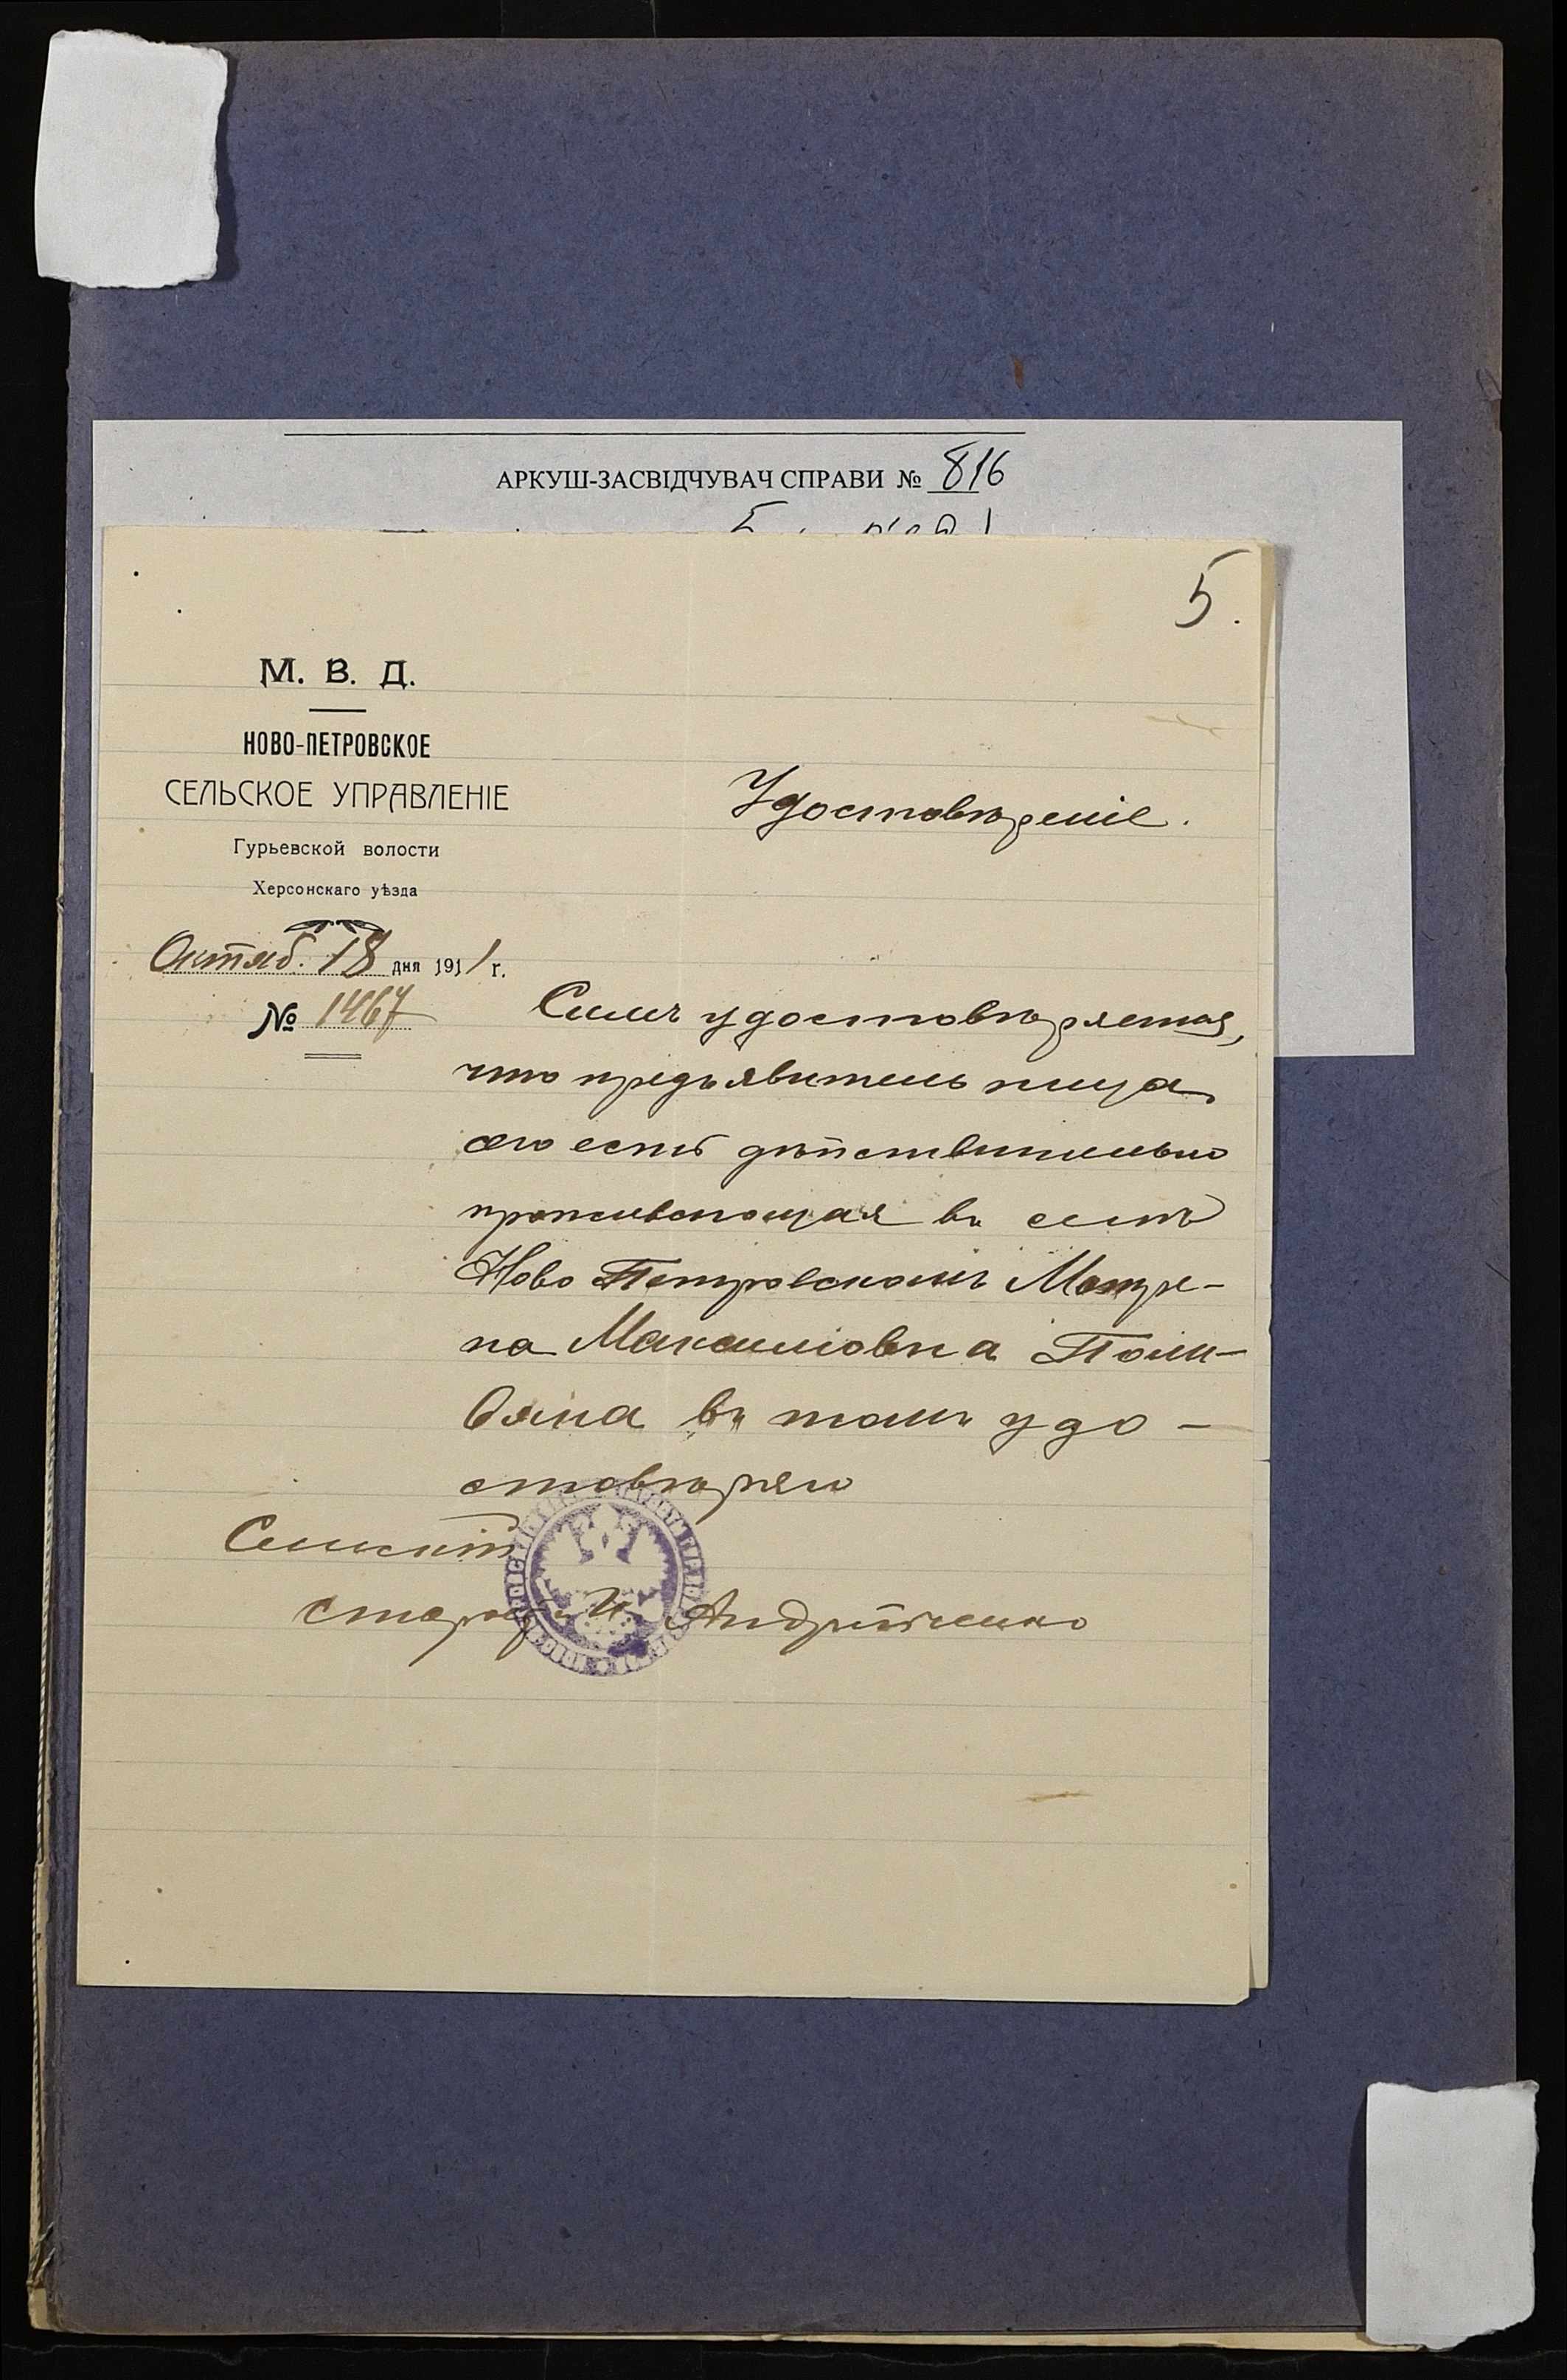 АРКУШ-ЗАСВІДЧУВАЧ СПРАВИ № 816
5.
М. В. Д.
НОВО-ПЕТРОВСКОЕ
СЕЛЬСКОЕ УПРАВЛЕНІЕ
Гурьевской волости
Херсонскаго уѣзда
Октяб. 18 дня 1911 г.
№ 1467
Удостовѣреніе.
Симъ удостовѣряется,
что предъявительница
сего есть дѣйствительно
проживающая въ селѣ
Ново Петровскомъ Матре-
на Максимовна
въ томъ удо-
стовѣряю
Сельскій
Староста И. Андрійченко